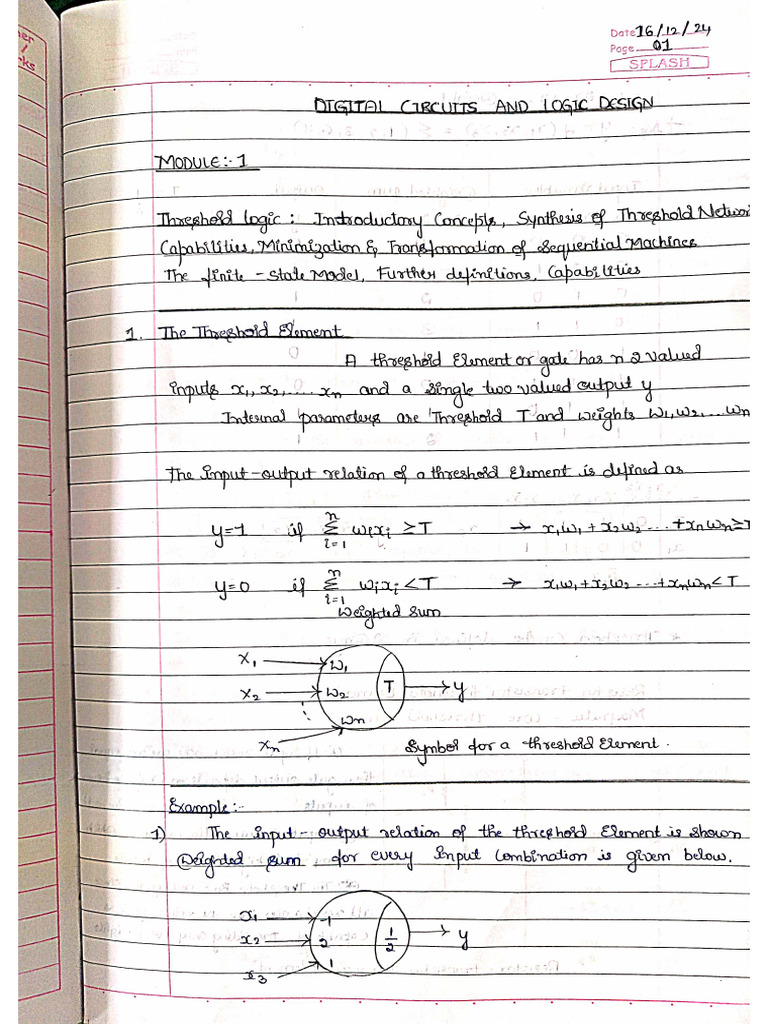 Date 16/12/24
Page 01
SPLASH
DIGITAL CIRCUITS AND LOGIC DESIGN
MODULE:- 1
Threshold Logic: Introductory Concepts, Synthesis of Threshold Networ
Capabilities, Minimization & Transformation of Sequential Machines
The finite-state Model, Further definitions, Capabilities
1. The Threshold Element
A threshold Element or gate has n 2 valued
inputs x₁, x₂, .... xn and a single two valued output y
Internal parameters are Threshold T and weights W₁, W₂, ... Wn
The input-output relation of a threshold Element is defined as
y=1 if n Σ i=1 wixi ≥ T → x₁w₁ + x₂w₂ ... + xnwn ≥ T
y=0 if n Σ i=1 wixi < T → x₁w₁ + x₂w₂ ... + xnwn < T
Weighted Sum
x₁ w₁
x₂ w₂ T y
wn
xn
Symbol for a threshold Element.
Example:-
1) The input-output relation of the threshold Element is shown
Weighted sum for every input combination is given below.
x₁ -1
x₂ 2 1/2 y
x₃ 1